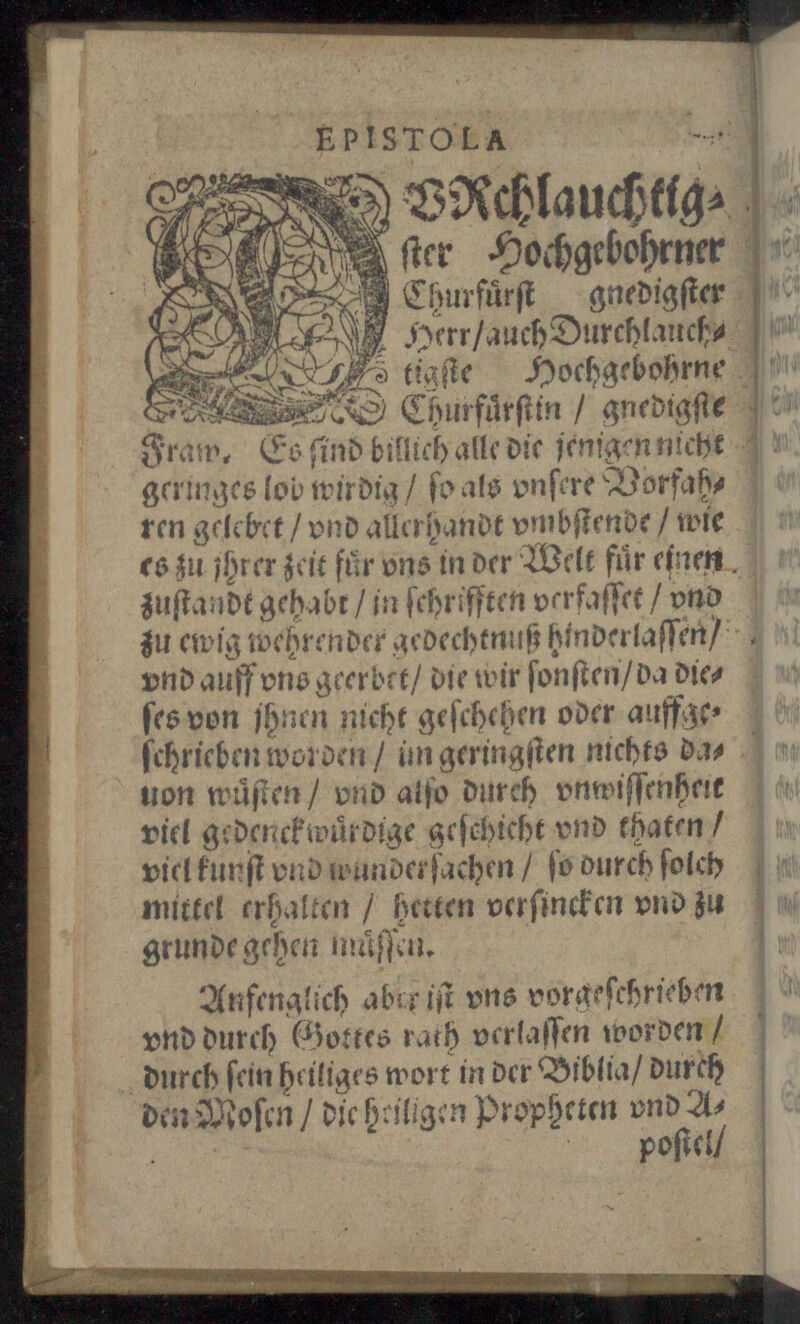 EPISTOLA
DVRchlauchtig⸗
ſter Hochgebohrner
Churfuͤrſt gnedigſter
Herr/auch Durchlauch⸗
tigſte Hochgebohrne
Churfuͤrſtin / gnedigſte
Fraw. Es ſind billich alle die jenigen nicht
geringes lob wirdig / ſo als vnſere Vorfah⸗
ren gelebet / vnd allerhandt vmbſtende / wie
es zu jhrer zeit fuͤr vns in der Welt fuͤr einen
zuſtandt gehabt / in ſchrifften verfaſſet / vnd
zu ewig wehrender gedechtnuß hinderlaſſen/
vnd auff vns geerbet/ die wir ſonſten/da die⸗
ſes von jhnen nicht geſchehen oder auffge⸗
ſchrieben worden / im geringſten nichts da⸗
uon wuͤſten / vnd alſo durch vnwiſſenheit
viel gedenckwuͤrdige geſchicht vnd thaten /
viel kunſt vnd wunderſachen / ſo durch ſolch
mittel erhalten / hetten verſincken vnd zu
grunde gehen muͤſſen.
Anfenglich aber iſt vns vorgeſchrieben
vnd durch Gottes rath verlaſſen worden /
durch ſein heiliges wort in der Biblia/ durch
den Moſen / die heiligen Propheten vnd A⸗
poſtel/